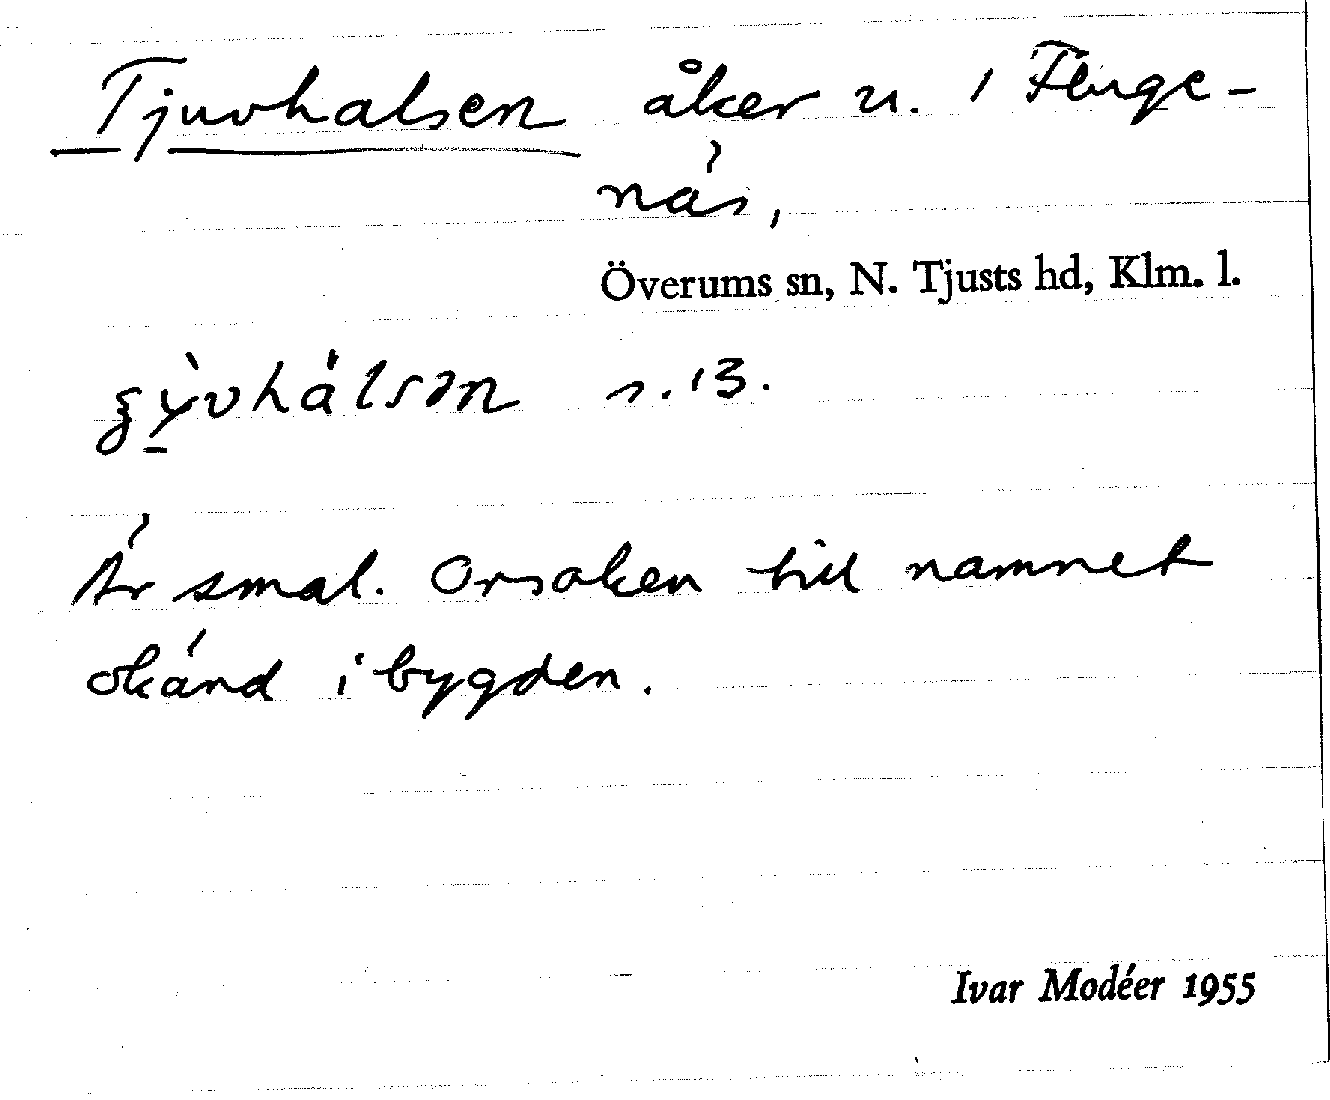 Tjuvhalsen åker u. 1 Fluge-
näs,
Överums sn, N. Tjusts hd, Klm. l.
s. 13.
Är smal. Orsaken till namnet
okänd i bygden.
Ivar Modéer 1955